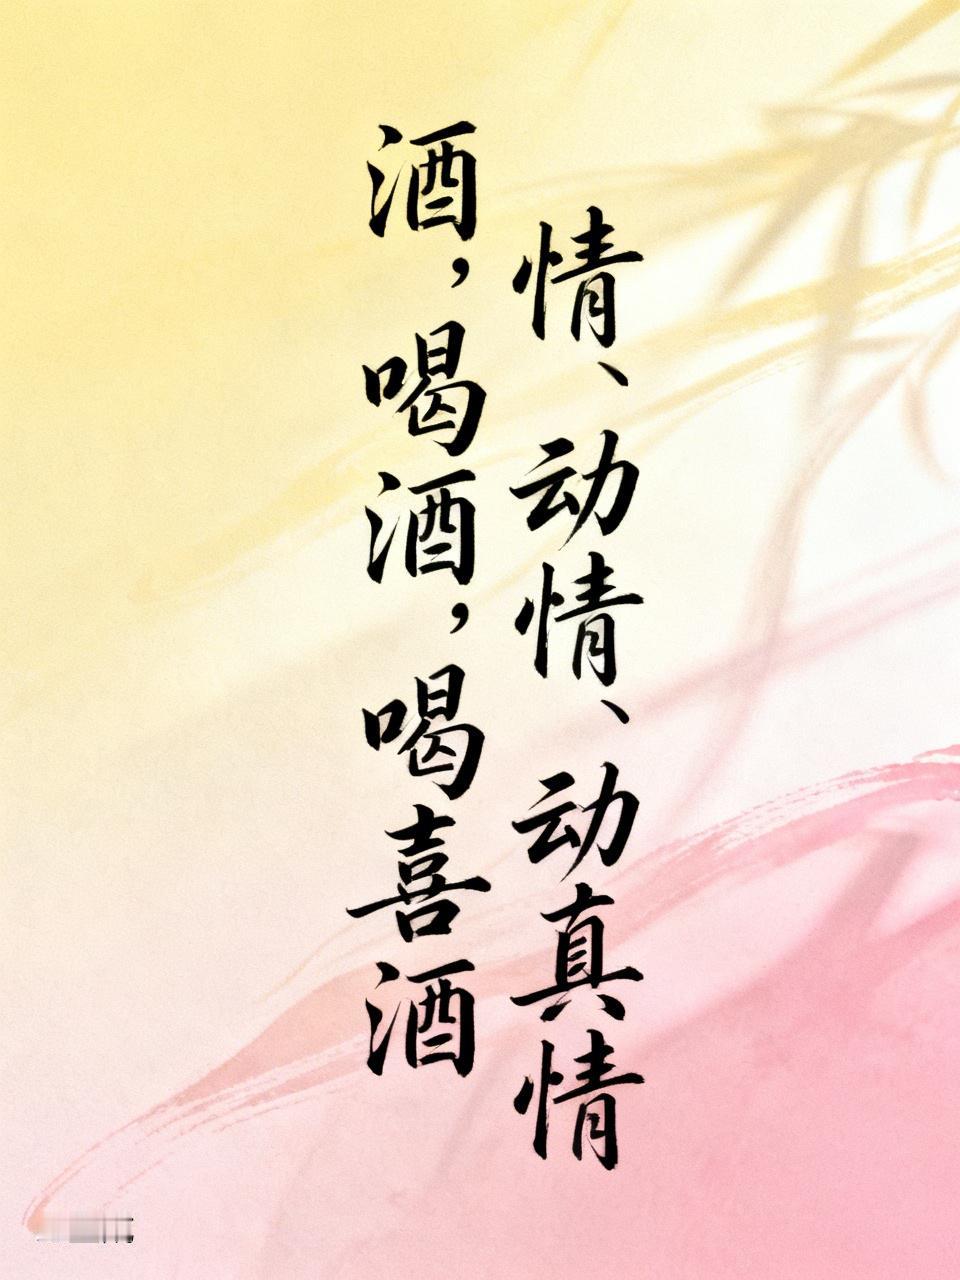 情、动情、动真情
酒，喝酒，喝喜酒